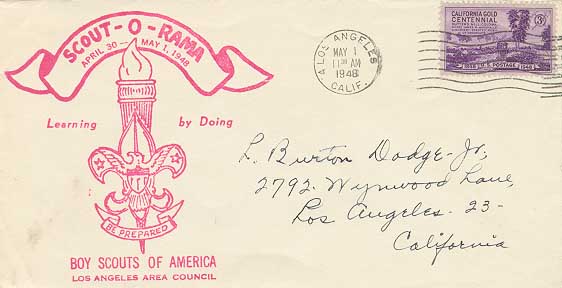 SCOUT-O-RAMA
APRIL 30 — MAY 1, 1948
Learning by Doing
BE PREPARED
BOY SCOUTS OF AMERICA
LOS ANGELES AREA COUNCIL
LOS ANGELES
MAY 1
11 30 AM
1948
CALIF.
CALIFORNIA GOLD
CENTENNIAL
3¢
1848 U.S. POSTAGE 1948
L. Burton Dodge-Jr;
2792 Wynwood Lane,
Los Angeles-23-
California